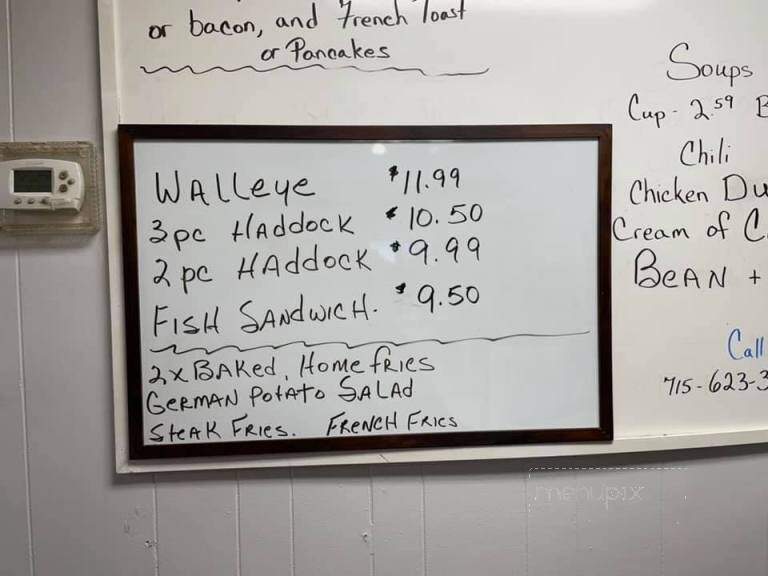 or bacon, and French Toast
or Pancakes
Walleye $11.99
3pc Haddock $10.50
2pc Haddock $9.99
Fish Sandwich. $9.50
2x Baked, Home fries
German Potato Salad
Steak Fries. French Fries
Soups
Cup - 2.59
Chili
Chicken Du
Cream of C
Bean +
Call
715-623-3
menupix